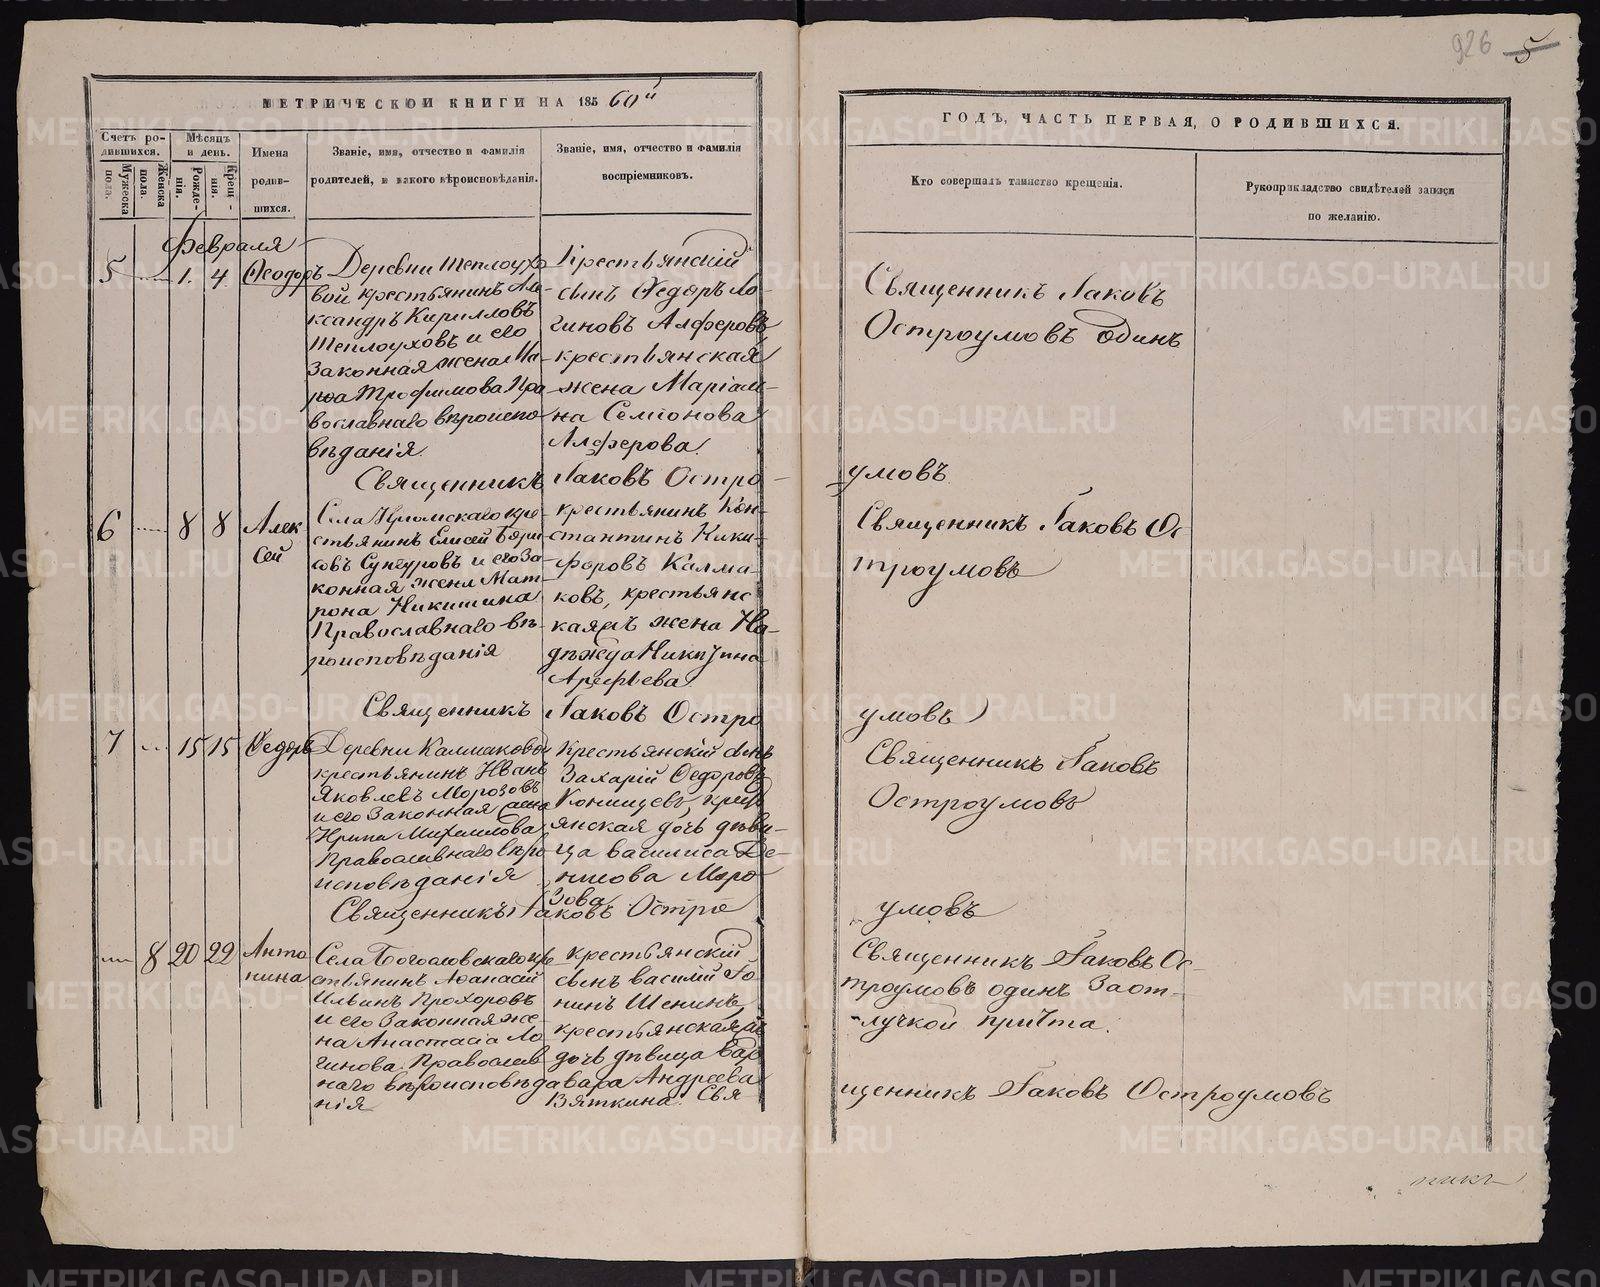 926 5
МЕТРИЧЕСКОЙ КНИГИ НА 185 60й
ГОДЪ, ЧАСТЬ ПЕРВАЯ, О РОДИВШИХСЯ.
Счетъ ро-
дившихся.
Мужеска
пола.
Женска
пола.
Мѣсяцъ
и день.
Рожде-
нія.
Крещ-
нія.
Имена
родив-
шихся.
Званіе, имя, отчество и фамилія
родителей, и какого вѣроисповѣданія.
Званіе, имя, отчество и фамилія
воспріемниковъ.
Кто совершалъ таинство крещенія.
Рукоприкладство свидѣтелей записи
по желанію.
Февраля
5 1. 4 Ѳеодоръ
Деревни Теплоухо
вой крестьянинъ Але-
ксандръ Кирилловъ
Теплоуховъ и его
законная жена Ма-
рѳа Трофимова Пра
вославнаго вѣроиспо
вѣданія.
Крестьянскій
сынъ Ѳедоръ Ло-
гиновъ Алферовъ
крестьянская
жена Маріам-
на Семіонова
Алферова.
Священникъ Іаковъ
Остроумовъ одинъ
Священникъ Іаковъ Остро-
умовъ
6 8 8 Алек
сей
Села Кромскаго кре-
стьянинъ Елисей Бори-
совъ Сунгуровъ и его за-
конная жена Мат-
рона Никитина
Православнаго вѣ-
роисповѣданія
крестьянинъ Кон-
стантинъ Ники-
форовъ Калма-
ковъ, крестьянс
кая жена На-
дѣжда Никитина
Арефьева.
Священникъ Іаковъ Ос-
троумовъ
Священникъ Іаковъ Остро
умовъ
7 15 15 Ѳедоръ
Деревни Калмаковой
крестьянинъ Иванъ
Яковлевъ Морозовъ
и его законная жена
Ирина Михаилова
Православнаго вѣро
исповѣданія
Крестьянскій сынъ
Захарій Ѳедоровъ
крест
янская дочь дѣви-
ца василиса Де-
Моро
зова
Священникъ Іаковъ
Остроумовъ
Священникъ Іаковъ Остро
умовъ
8 20 22 Анто
нина
Села Богословскаго кре
стьянинъ Аѳанасій
Ильинъ Прохоровъ
и его законная же-
на Анастасіа Ло
гинова. Православ
наго вѣроисповѣда
нія
крестьянскій
сынъ василій Ро
Шенинъ,
крестьянская
дочь дѣвица вар
вара Андреева
Вяткина. Свя-
Священникъ Іаковъ Ос-
троумовъ одинъ за от-
лучкой причта.
щенникъ Іаковъ Остроумовъ
никъ
METRIKI.GASO-URAL.RU